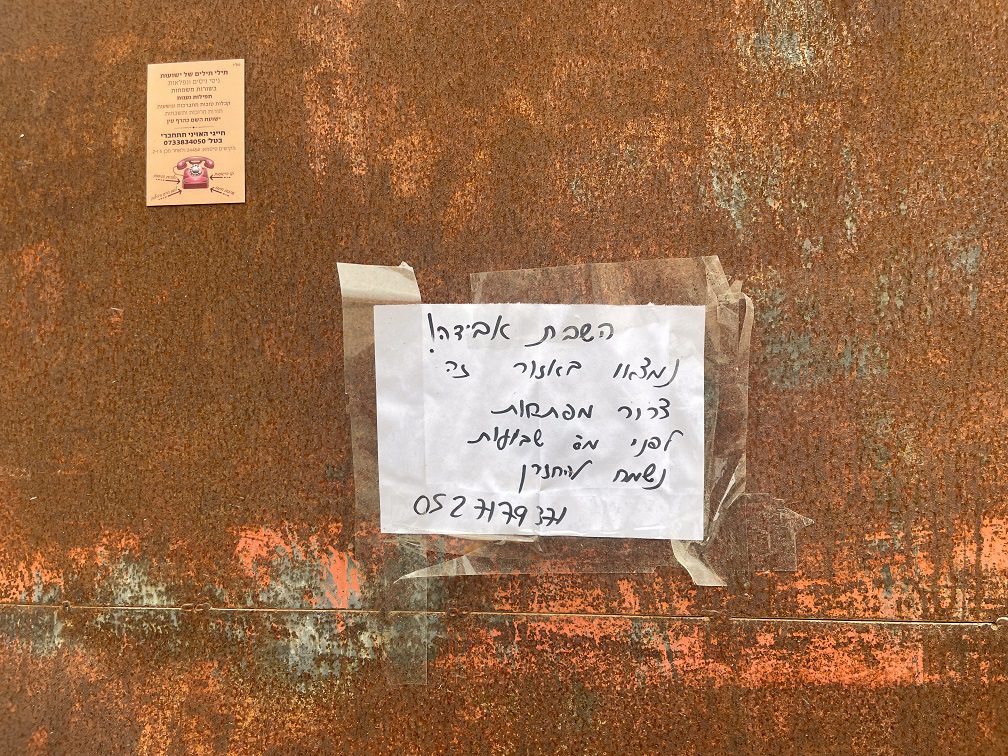 תילי תילים של ישועות
ניסי ניסים ונפלאות
בשורות משמחות
תפילות נענות
קבלות טובות מתברכות ונושעות
ישועת השם כהרף עין
חייגי האזיני תתחברי
בטל׳ 0733834050
השבת אבידה!
נמצאו באזור זה
צרור מפתחות
לפני מס׳ שבועות
נשמח להחזירן
0527179371